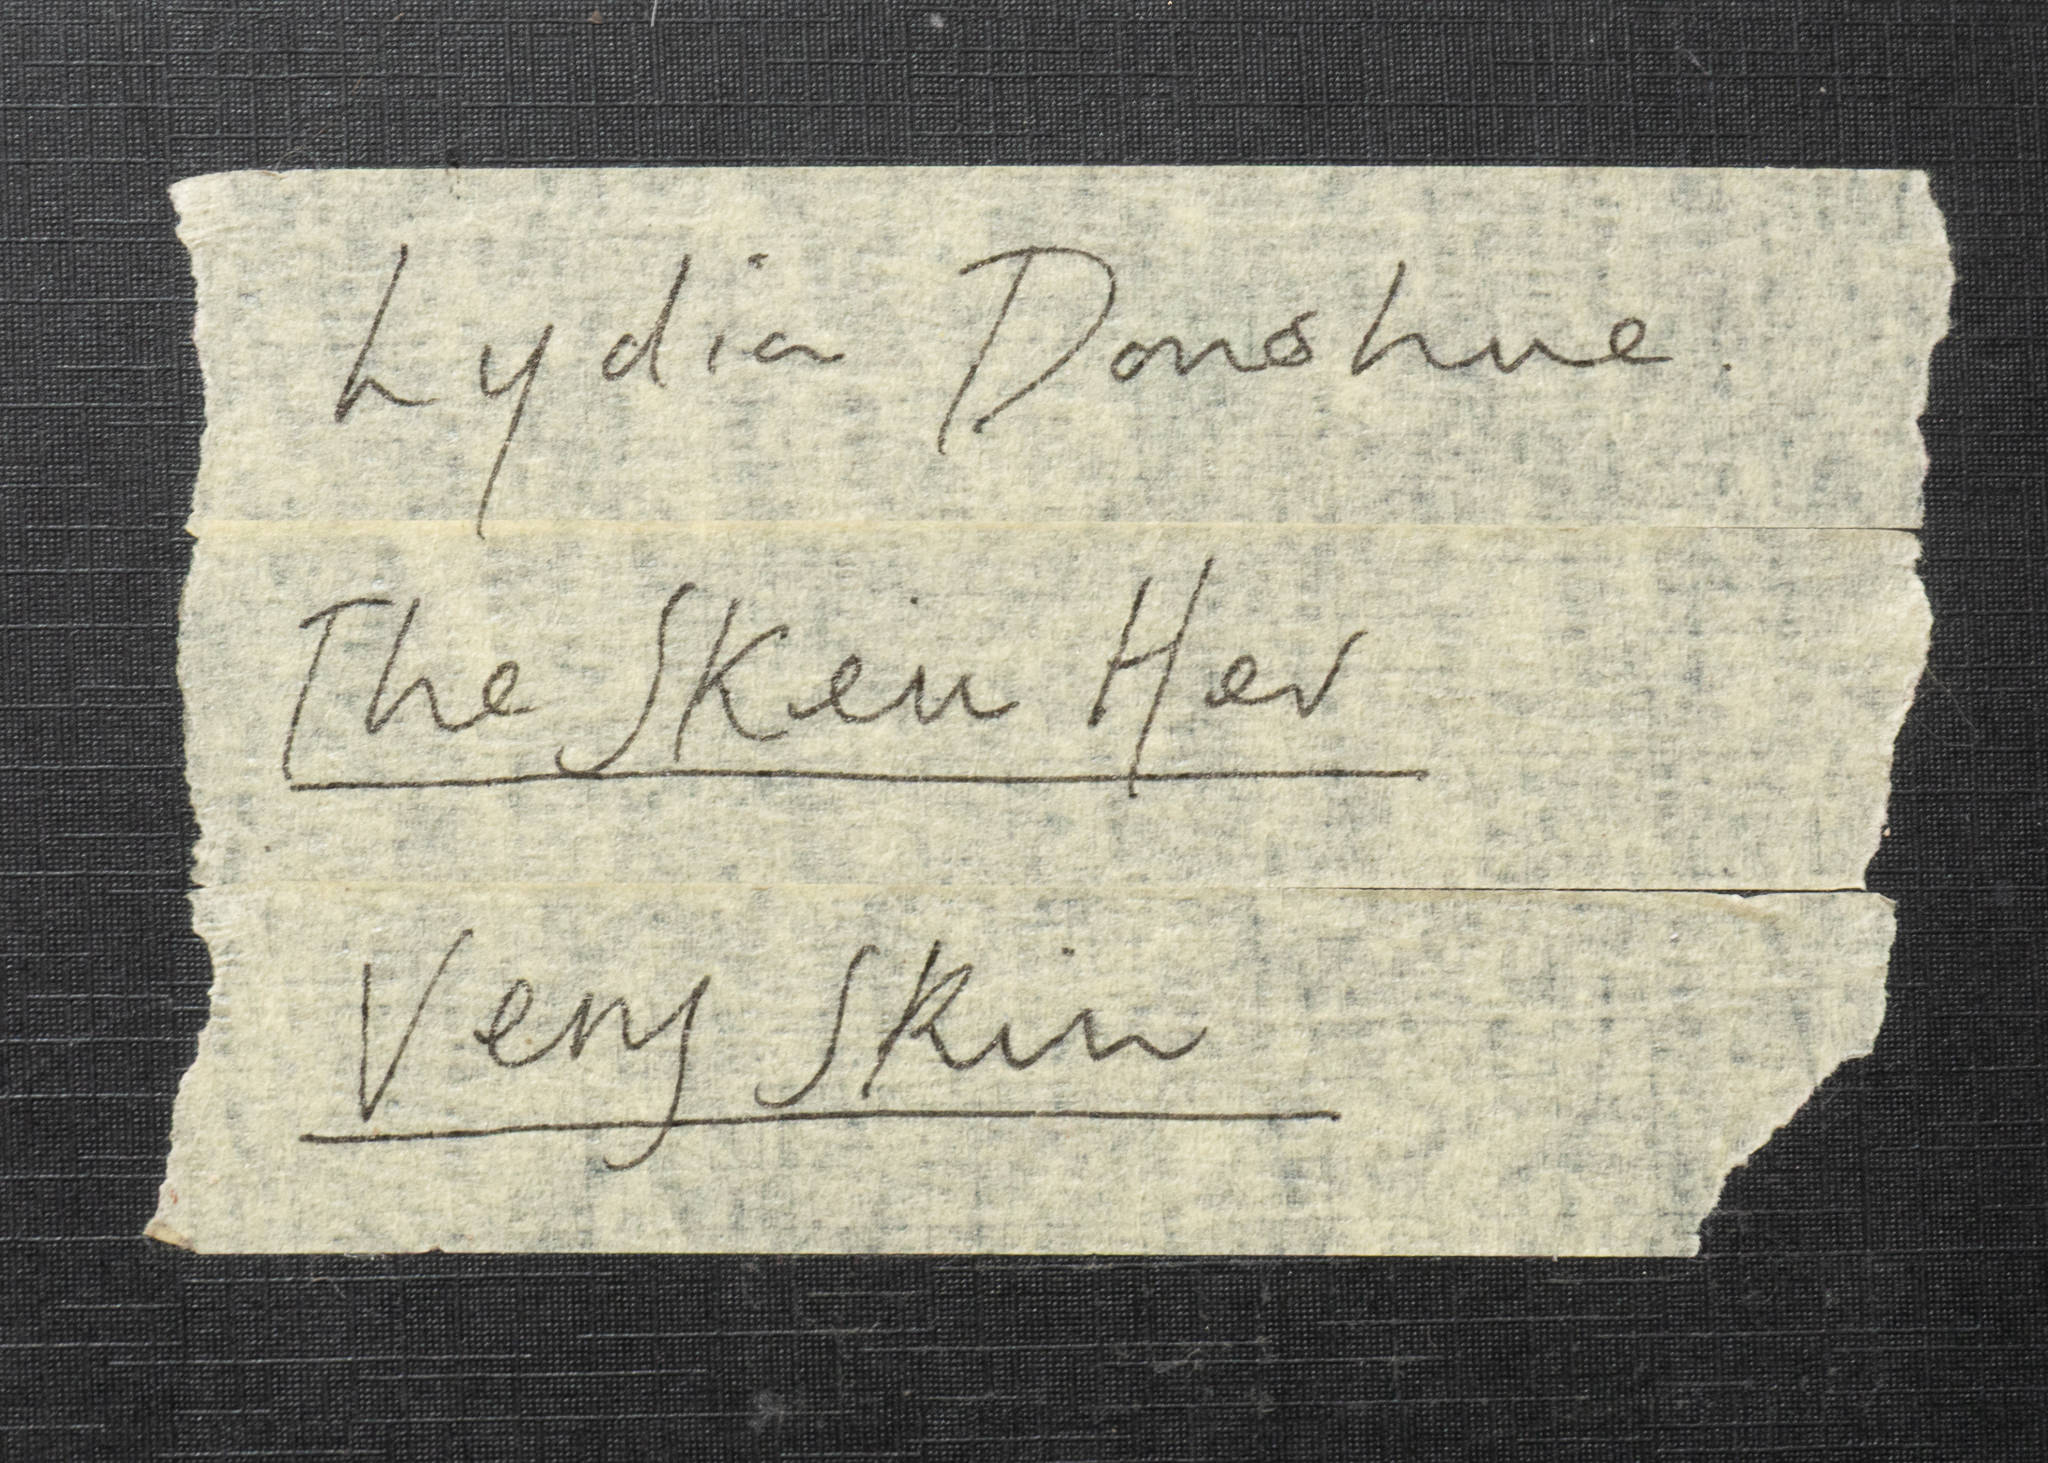 Lydia Donohue.
The Skein Her
Very Skin